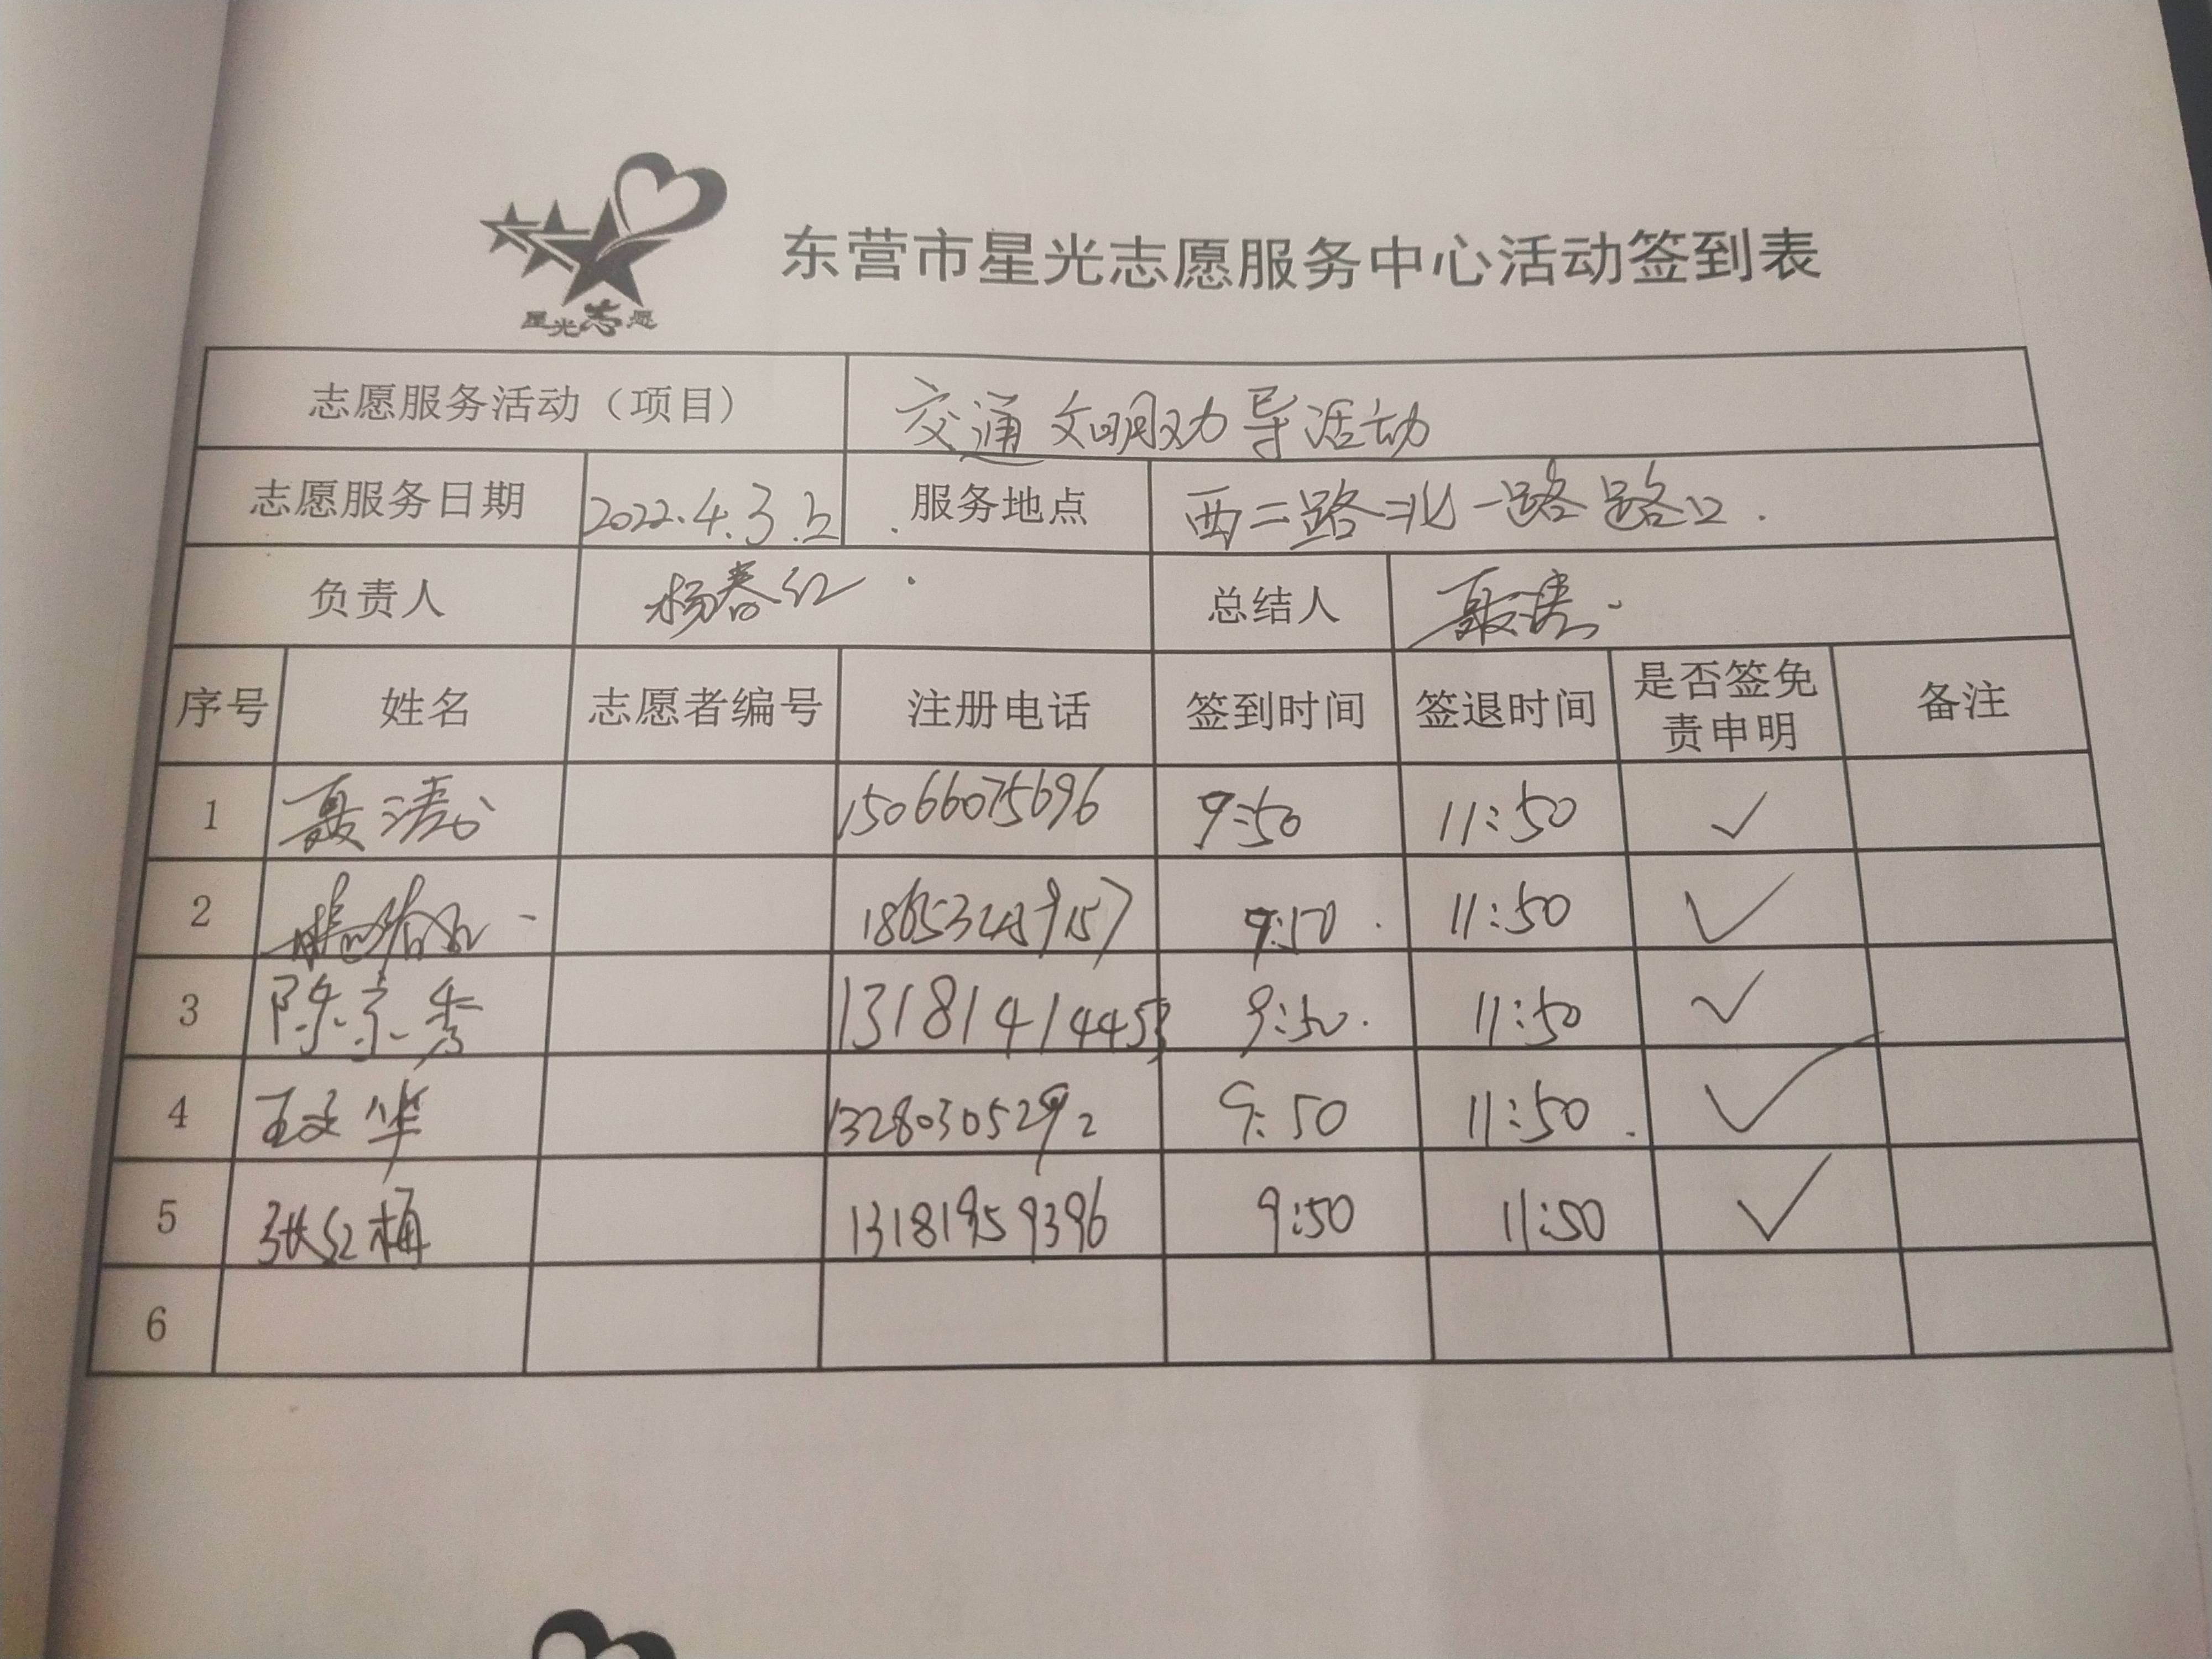 星光志愿
东营市星光志愿服务中心活动签到表
志愿服务活动（项目） 交通文明劝导活动
志愿服务日期 2022.4.3上 服务地点 西二路北一路路口.
负责人 杨春红 总结人 聂涛
序号 姓名 志愿者编号 注册电话 签到时间 签退时间 是否签免责申明 备注
1 聂涛 15066075696 9:50 11:50 ✓
2 9:50 11:50 ✓
3 陈京秀 13181414453 9:50 11:50 ✓
4 王文华 13280305292 9:50 11:50 ✓
5 张红梅 13181959396 9:50 11:50 ✓
6